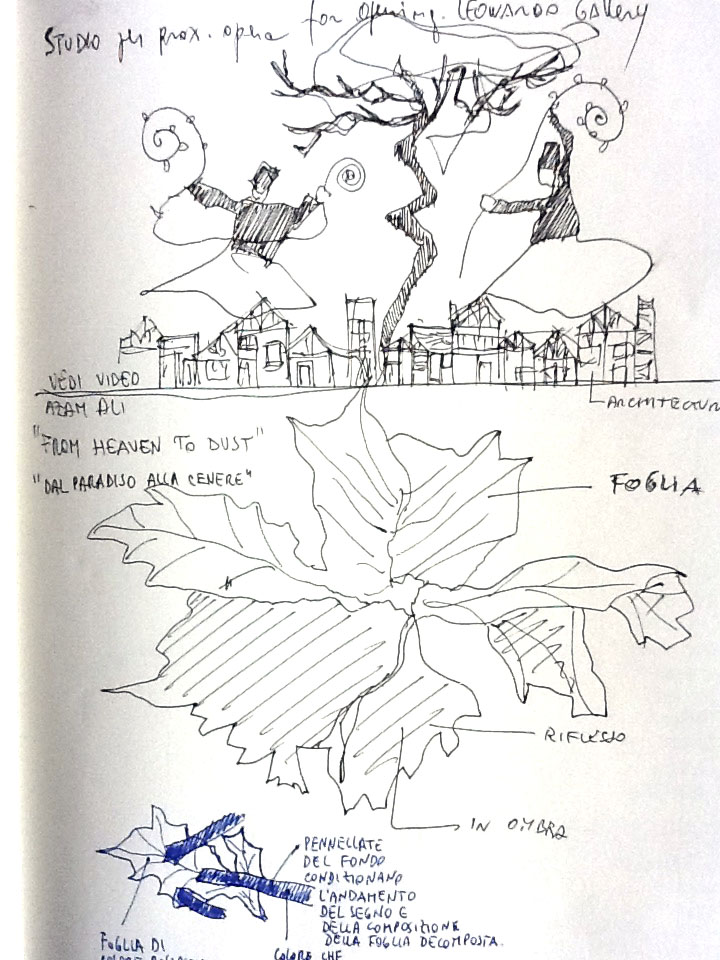 STUDIO per prox. opera for opening. LEOWARDO GAllery
VEDI VIDEO
AZAM ALI
ARCHITECTUR
"FROM HEAVEN TO DUST"
"DAL PARADISO ALLA CENERE"
FOGLIA
RIFLESSO
IN OMBRA
PENNELLATE
DEL FONDO
CONDIZIONANO
L'ANDAMENTO
DEL SEGNO E
DELLA COMPOSIZIONE
DELLA FOGLIA DECOMPOSTA.
FOGLIA DI
COLORE CHE